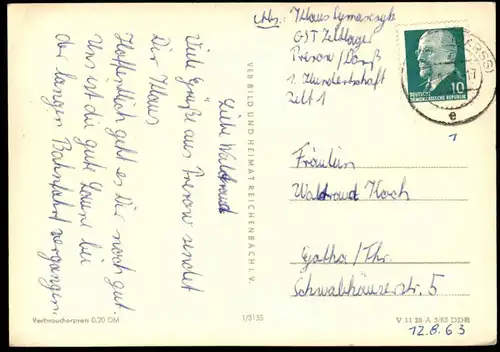 Liebe Waldraud
Viele Grüße aus Prerow sendet
Dir Klaus
Hoffentlich geht es Dir noch gut.
Uns ist die gute Laune bei
der langen Bahnfahrt vergangen.
VEB BILD UND HEIMAT REICHENBACH I. V.
Abs.: Klaus
GST Zeltlager
Prerow / Darß
1. Hundertschaft
Zelt 1
10
DEUTSCHE
DEMOKRATISCHE REPUBLIK
e
1
Fräulein
Waldraud Koch
Gotha / Thr.
Schwabhäuserstr. 5
Verbraucherpreis 0,20 DM
1/3135
V 11 28 A 3/63 DDR
12.8.63